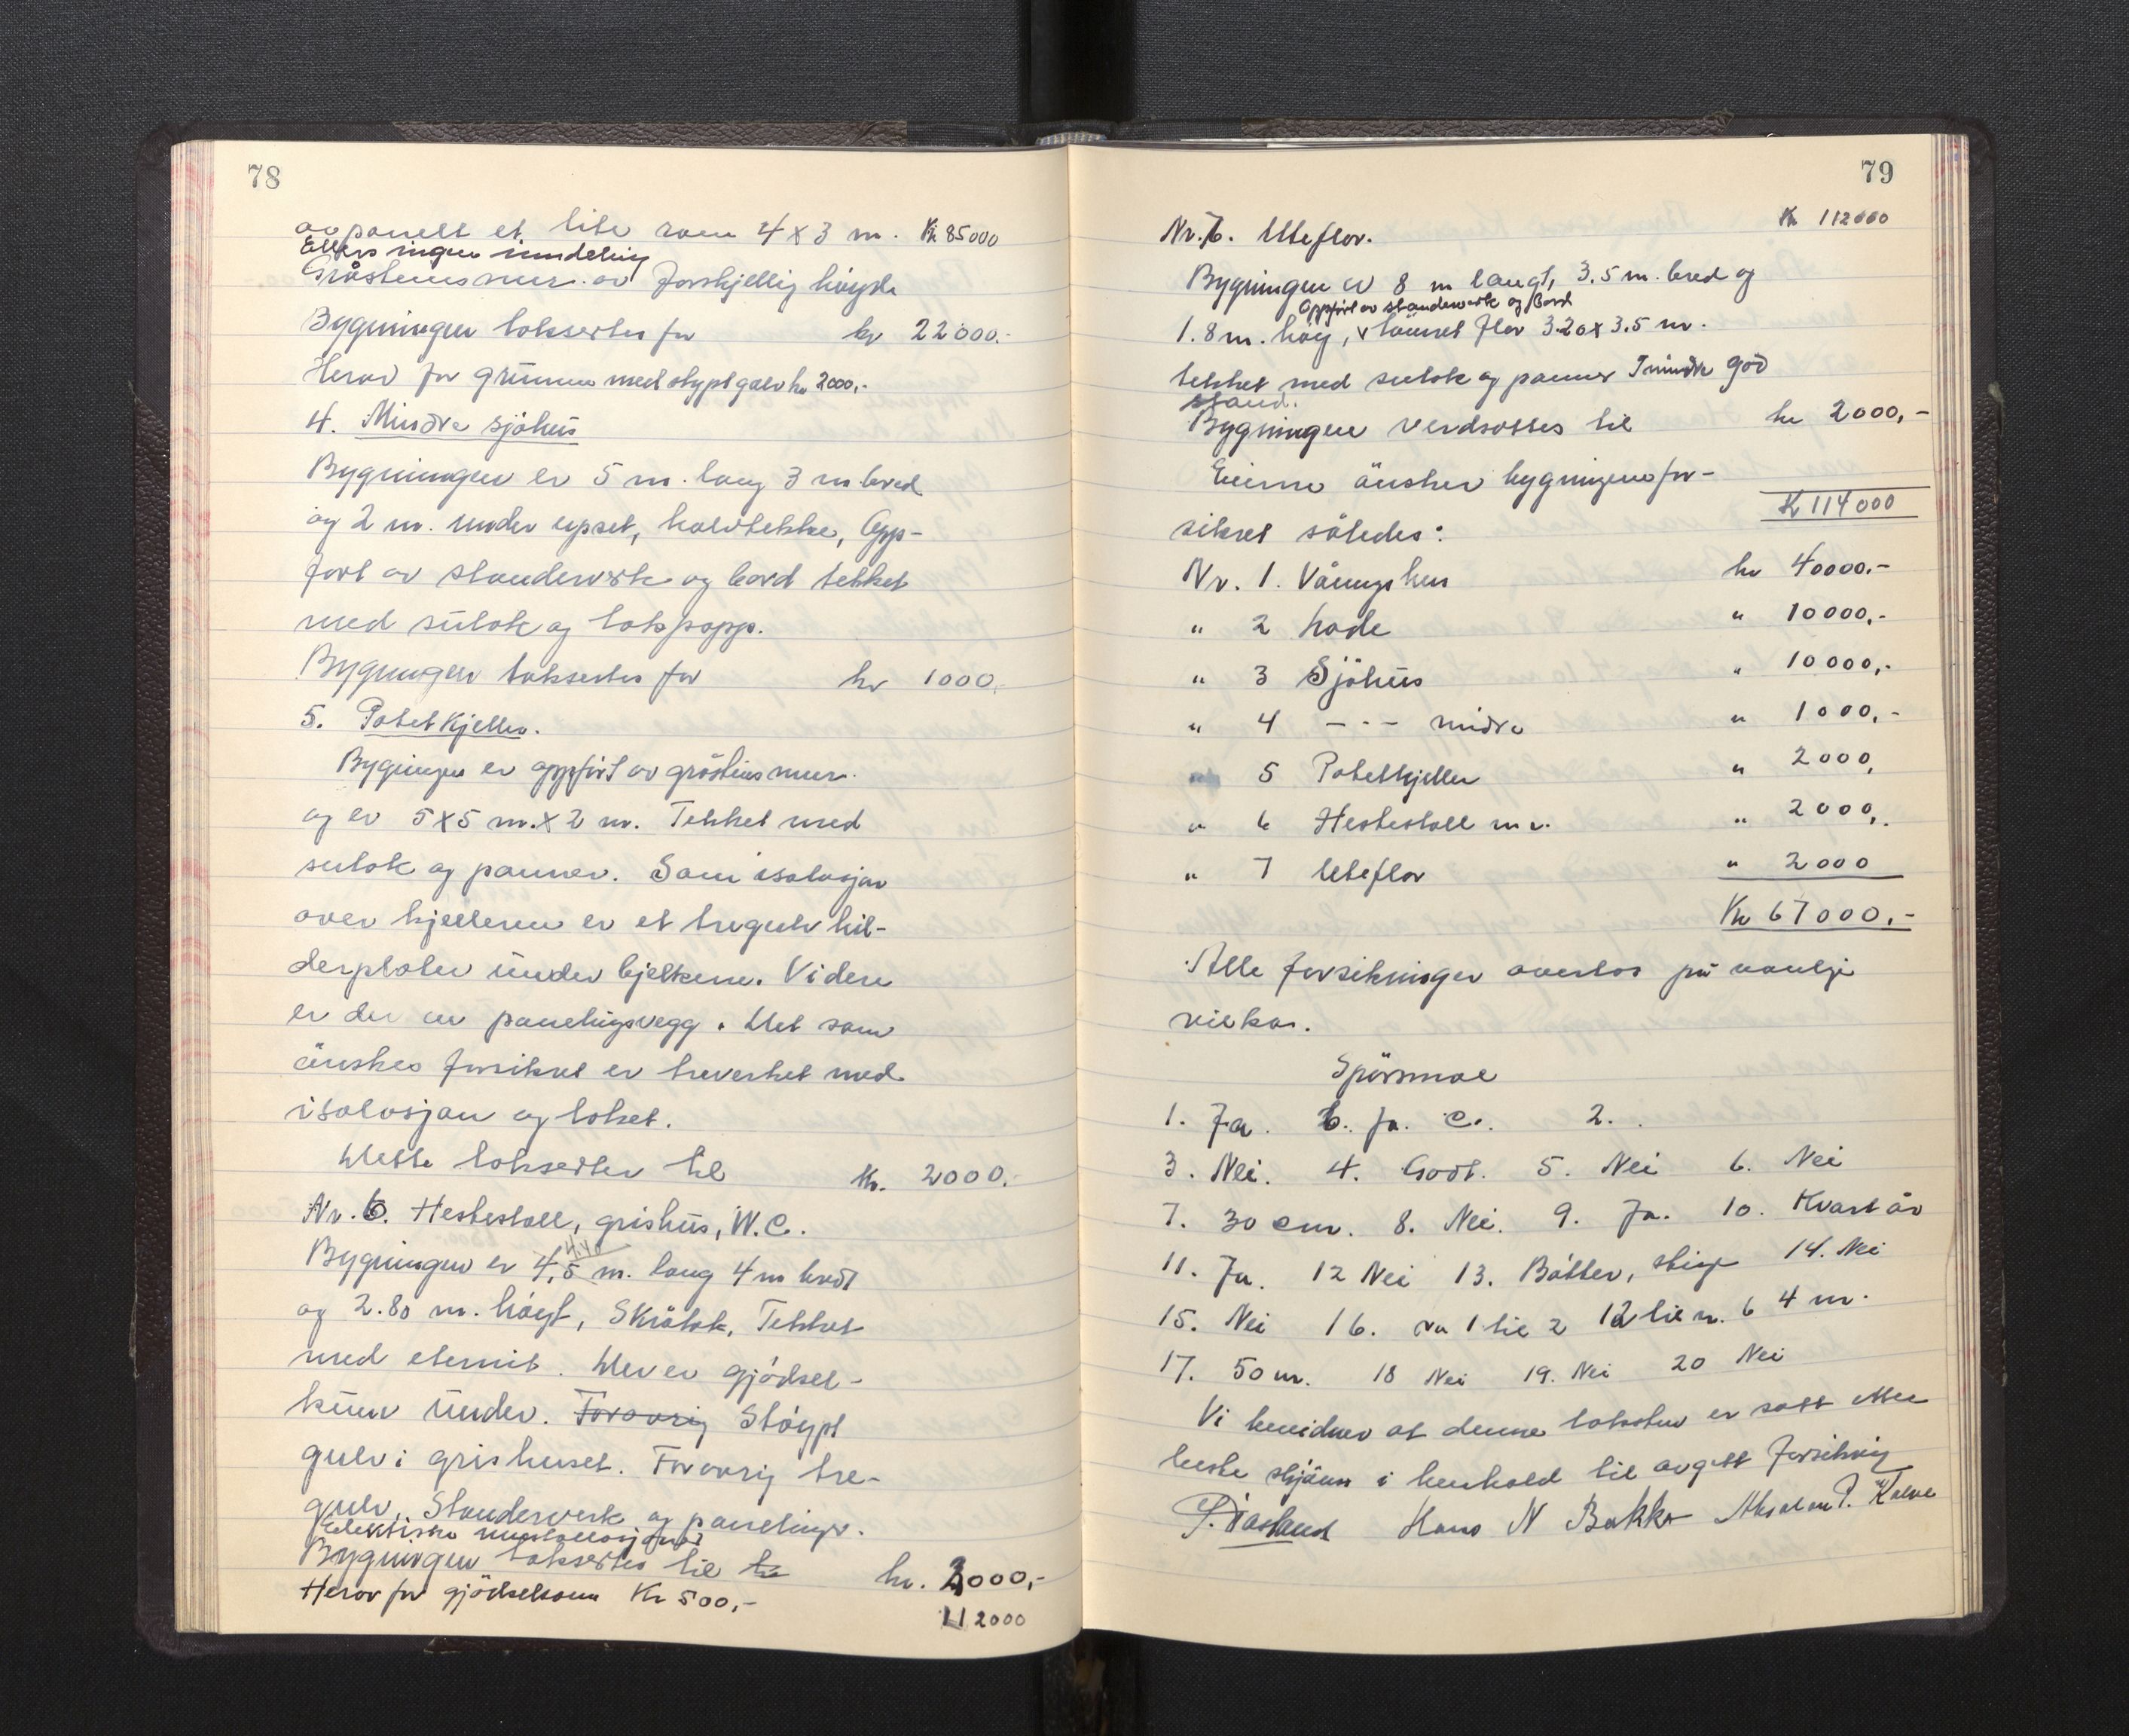 78
av panelt et lite rom 4 x 3 m. Kr 85000
Ellers ingen inndeling
Gråsteinsmur av forskjellig høyde
Bygningen takseres for kr 22000.-
Herav for grunnmur med støypt golv kr 2000,-
4. Mindre sjøhus
Bygningen er 5 m. lang 3 m. bred
og 2 m. under upset, halvtekke, Opp-
ført av standerverk og bord tekket
med sutak og takpapp.
Bygningen takseres for kr 1000.
5. Potetkjeller.
Bygningen er oppført av gråsteinsmur.
og er 5 x 5 m. x 2 m. Tekket med
sutak og panner. Som isolasjon
over kjelleren er et tregulv hil-
derplater under bjelkene. Videre
er der en panelingsvegg. Det som
ønskes forsikret er treverket med
isolasjon og taket.
Dette takserter til kr. 2000.-
Nr. 6. Hestestall, grishus, W.C.
4.40
Bygningen er 4,5 m. lang 4 m bredt
og 2.80 m. høygt, Skråtak, Tekket
med eternit. Der er gjødsel-
kum under. Forøvrig Støypt
gulv i grishuset. Forøvrig tre-
gulv. Standerverk og panelinger.
Elektriske innstallasjoner
Bygningen takseres til kr kr. 3000,-
Herav for gjødselkum Kr 500,-
112000
79
Kr 112000
Nr. 7. Uteflor.
Bygningen er 8 m langt, 3.5 m. bred og
Oppført av standerverk og Bord
1.8 m. høy, v tømret flor 3.20 x 3.5 m.
tekket med sutak og panner I mindre god
stand.
Bygningen verdsettes til kr 2000,-
Eierne ønsker bygningene for-
Kr 114000
sikret således:
Nr. 1. Våningshus kr 40000.-
" 2 Løde " 10000,-
" 3 Sjøhus " 10000,-
" 4 - - - mindre " 1000,-
5 Potetkjeller " 2000,
" 6 Hestestall m.v. " 2000,.
" 7 Uteflor " 2000
Kr 67000.-
Alle forsikringer overlos på vanlige
vilkår.
Spørsmål
1. Ja. b. Ja. c. 2.
3. Nei. 4. Godt. 5. Nei 6. Nei
7. 30 cm. 8. Nei. 9. Ja. 10. Kvart år
11. Ja. 12 Nei 13. Bøtter, stige 14. Nei
15. Nei 16. Nr 1 til 2 12 til n. 6 4 m.
17. 50 m. 18 Nei 19. Nei 20 Nei
Vi bevidner at denne taksten er satt etter
beste skjønn i henhold til avgitt forsikring
P. Døsland Hans N Bakke Absalon P. Kalve